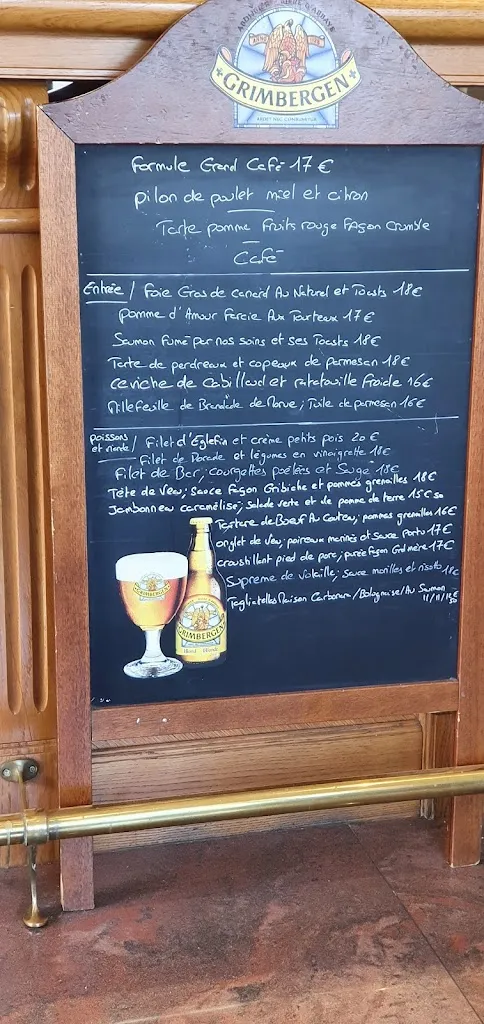 GRIMBERGEN
ARDET NEC CONSUMITUR
Formule Grand Café 17 €
pilon de poulet miel et citron
Tarte pomme Fruits rouge Façon Crumble
Café
Entrée / Foie Gras de canard Au Naturel et Toasts 18€
pomme d'Amour Farcie Aux Tourteaux 17€
Saumon Fumé par nos soins et ses Toasts 18€
Tarte de perdreaux et copeaux de parmesan 18€
Ceviche de Cabillaud et ratatouille froide 16€
Millefeuille de Brandade de Morue; Tuile de parmesan 16€
poissons et viande / Filet d'Eglefin et crème petits pois 20€
Filet de Dorade et légumes en vinaigrette 18€
Filet de Bar; courgettes poêlées et Sauge 18€
Tête de Veau; Sauce Façon Gribiche et pommes grenailles 18€
Jambonneau caramélisé; Salade verte et de pomme de terre 15€50
Tartare de Bœuf Au Couteau; pommes grenailles 16€
onglet de Veau; poireaux marinés et sauce Porto 17€
croustillant pied de porc; purée façon Grd mère 17€
Supreme de Volaille; Sauce morilles et risotto 18€
Tagliatelles Maison Carbonara/Bolognaise/Au Saumon
11/11/12€50
GRIMBERGEN
GRIMBERGEN
Blond Blonde